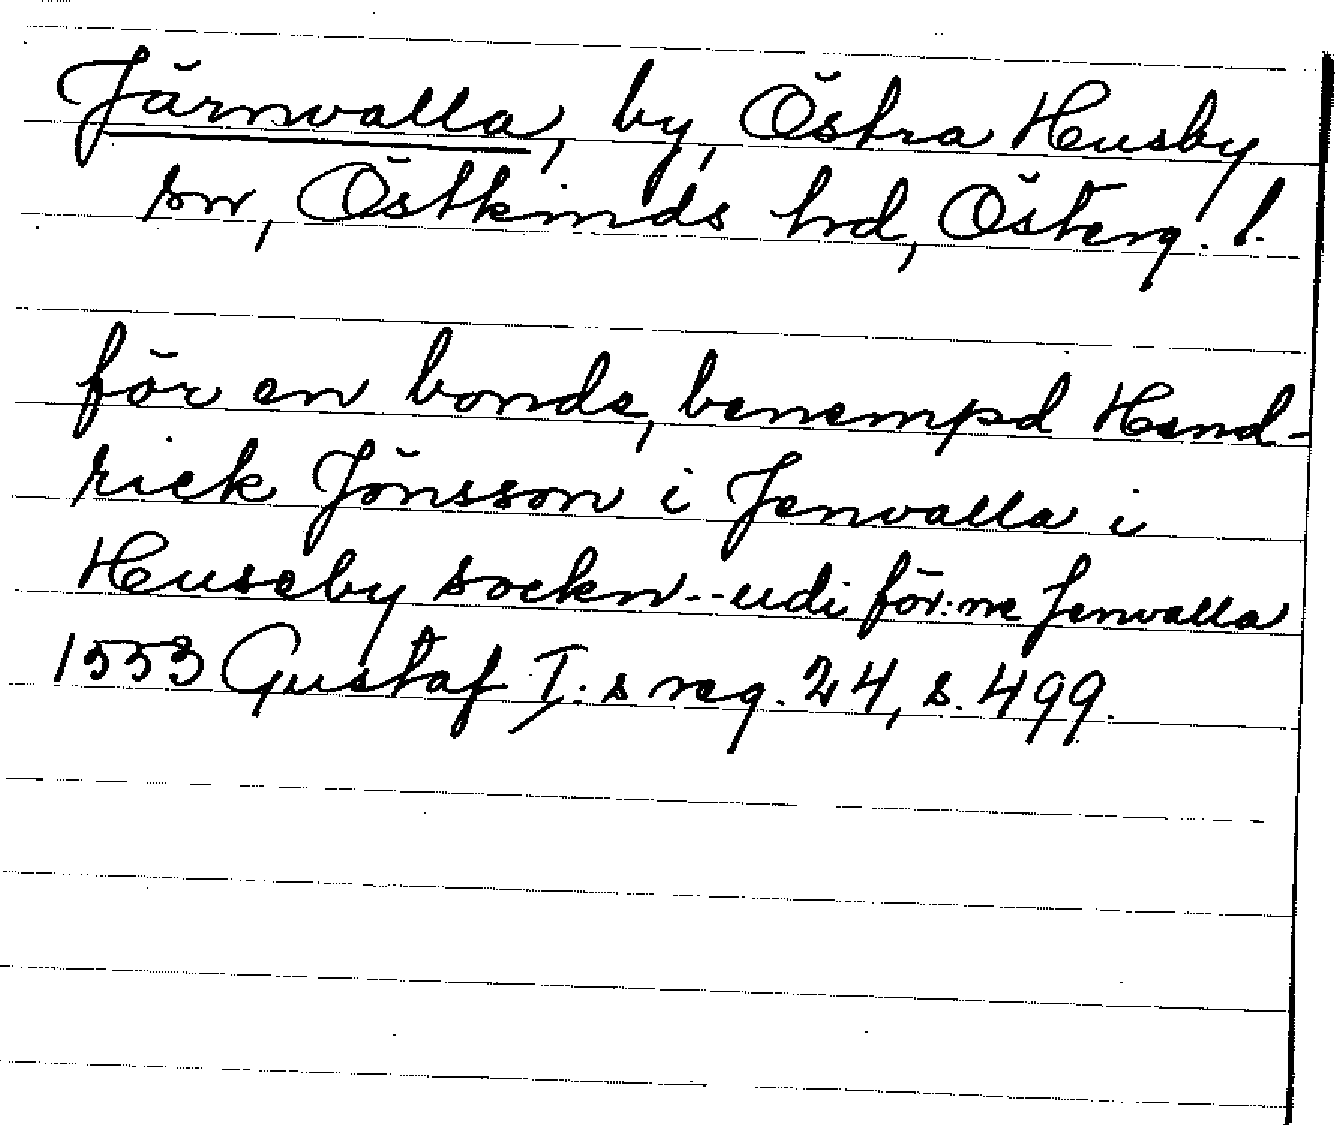 Järnvalla, by, Östra Husby
sn, Östkinds hrd, Österg. l.
för en bonde, benempd Hend-
rick Jönsson i Jenvalla i
Huseby sockn -- udi för:ne Jenvalla
1553 Gustaf I:s reg. 24, s. 499.